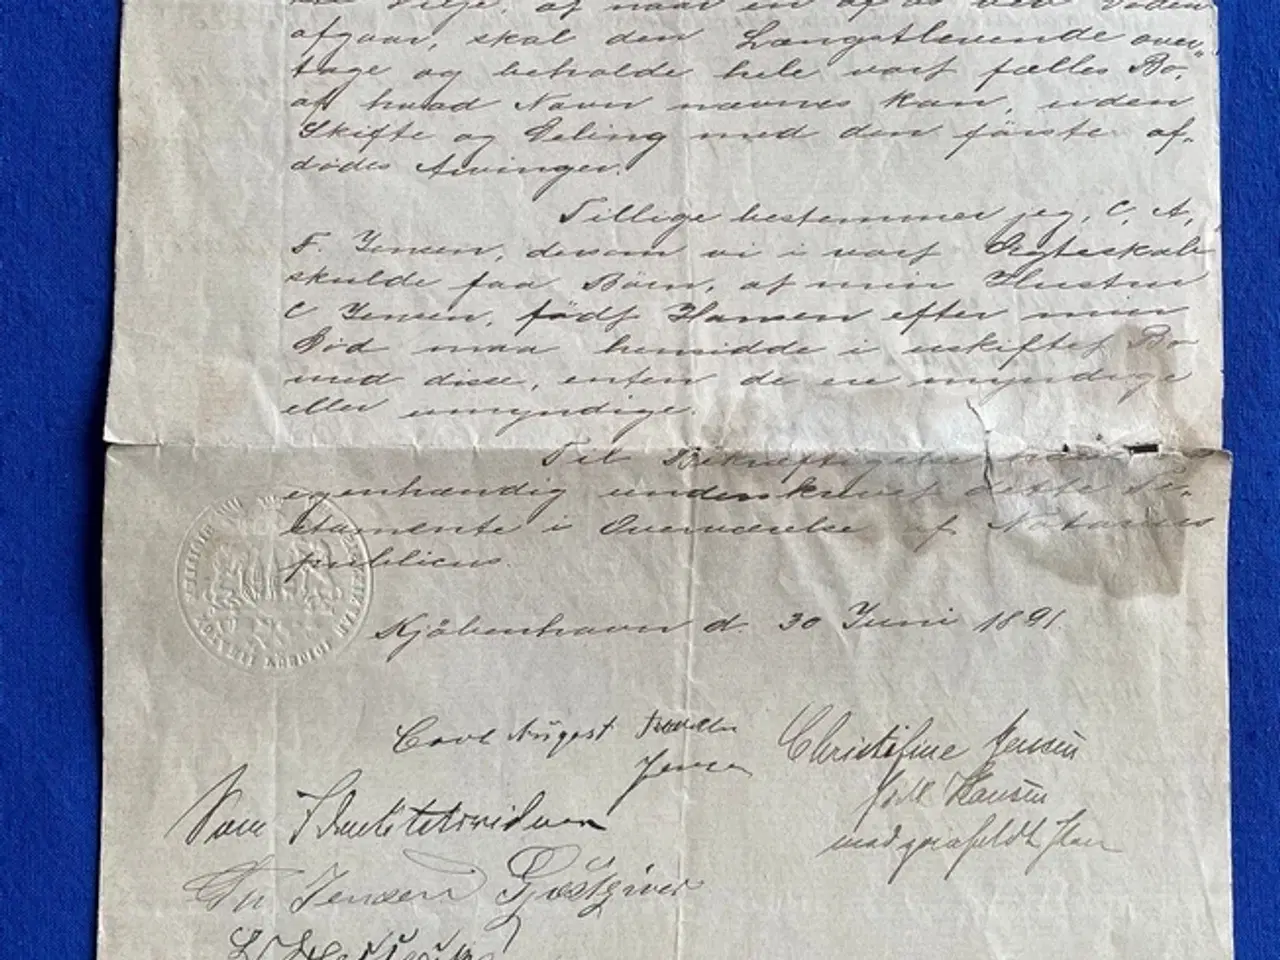 Vilje, at naar en af os ved Døden
afgaar, skal den Længstlevende over-
tage og beholde hele vort fælles Bo,
af hvad Navn nævnes kan, uden
Skifte og Deling med den første af-
dødes Arvinger.
Tillige bestemmer jeg, C. A.
F. Jensen, dersom vi i vort Ægteskab
skulde faa Børn, at min Hustru
C Jensen, født Hansen efter min
Død maa hensidde i uskiftet Bo
med disse, enten de ere myndige
eller umyndige.
Til Bekræftigelse
egenhændig underskrevet dette Te-
stamente i Overværelse af Notarius
publicus.
Kjøbenhavn d. 30 Juni 1891
Carl August
Jensen
Christine Jensen
født Hansen
med Pen
Som Identitetsvidner
Th Jensen Gjæstgiver